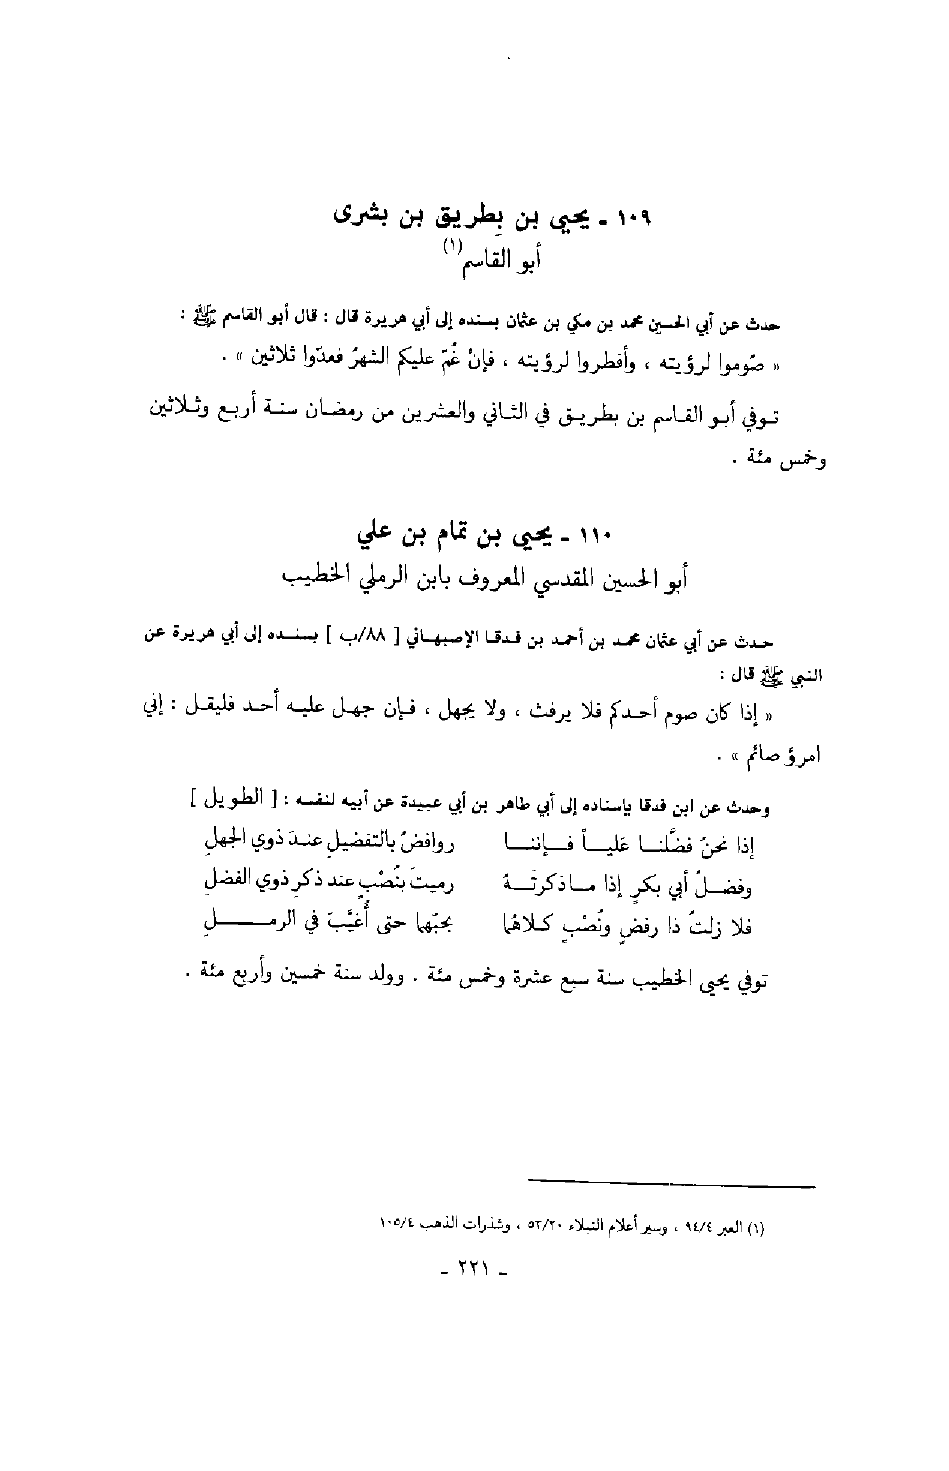 ١٠٩ ـ يحيى بن بِطريق بن بشرى
أبو القاسم(١)
حدث عن أبي الحسين محمد بن مكي بن عثمان بسنده إلى أبي هريرة قال : قال أبو القاسم ﷺ :
« صُوموا لرؤيته ، وأفطروا لرؤيته ، فإنْ غُمّ عليكم الشهرُ فعدّوا ثلاثين » .
توفي أبو القاسم بن بطريق في الثاني والعشرين من رمضان سنة أربع وثلاثين
وخمس مئة .
١١٠ ـ يحيى بن تمام بن علي
أبو الحسين المقدسي المعروف بابن الرملي الخطيب
حدث عن أبي عثمان محمد بن أحمد بن قدقا الإصبهاني [ ٨٨/ب ] بسنده إلى أبي هريرة عن
النبي ﷺ قال :
« إذا كان صوم أحدكم فلا يرفث ، ولا يجهل ، فإن جهل عليه أحد فليقل : إني
امرؤ صائم » .
وحدث عن ابن قدقا بإسناده إلى أبي طاهر بن أبي عبيدة عن أبيه لنفسه : [ الطويل ]
إذا نحنُ فضَّلنا عَلياً فإننا روافضُ بالتفضيلِ عندَ ذوي الجهلِ
وفضلُ أبي بكرٍ إذا ما ذكرتُهُ رميتَ بنُصْبٍ عند ذكرِ ذوي الفضلِ
فلا زلتُ ذا رفضٍ ونُصْبٍ كلاهما بحبّهما حتى أُغيَّبَ في الرملِ
توفي يحيى الخطيب سنة سبع عشرة وخمس مئة . وولد سنة خمسين وأربع مئة .
(١) العبر ٩٤/٤ ، وسير أعلام النبلاء ٥٢/٢٠ ، وشذرات الذهب ١٠٥/٤
ـ ٢٢١ ـ